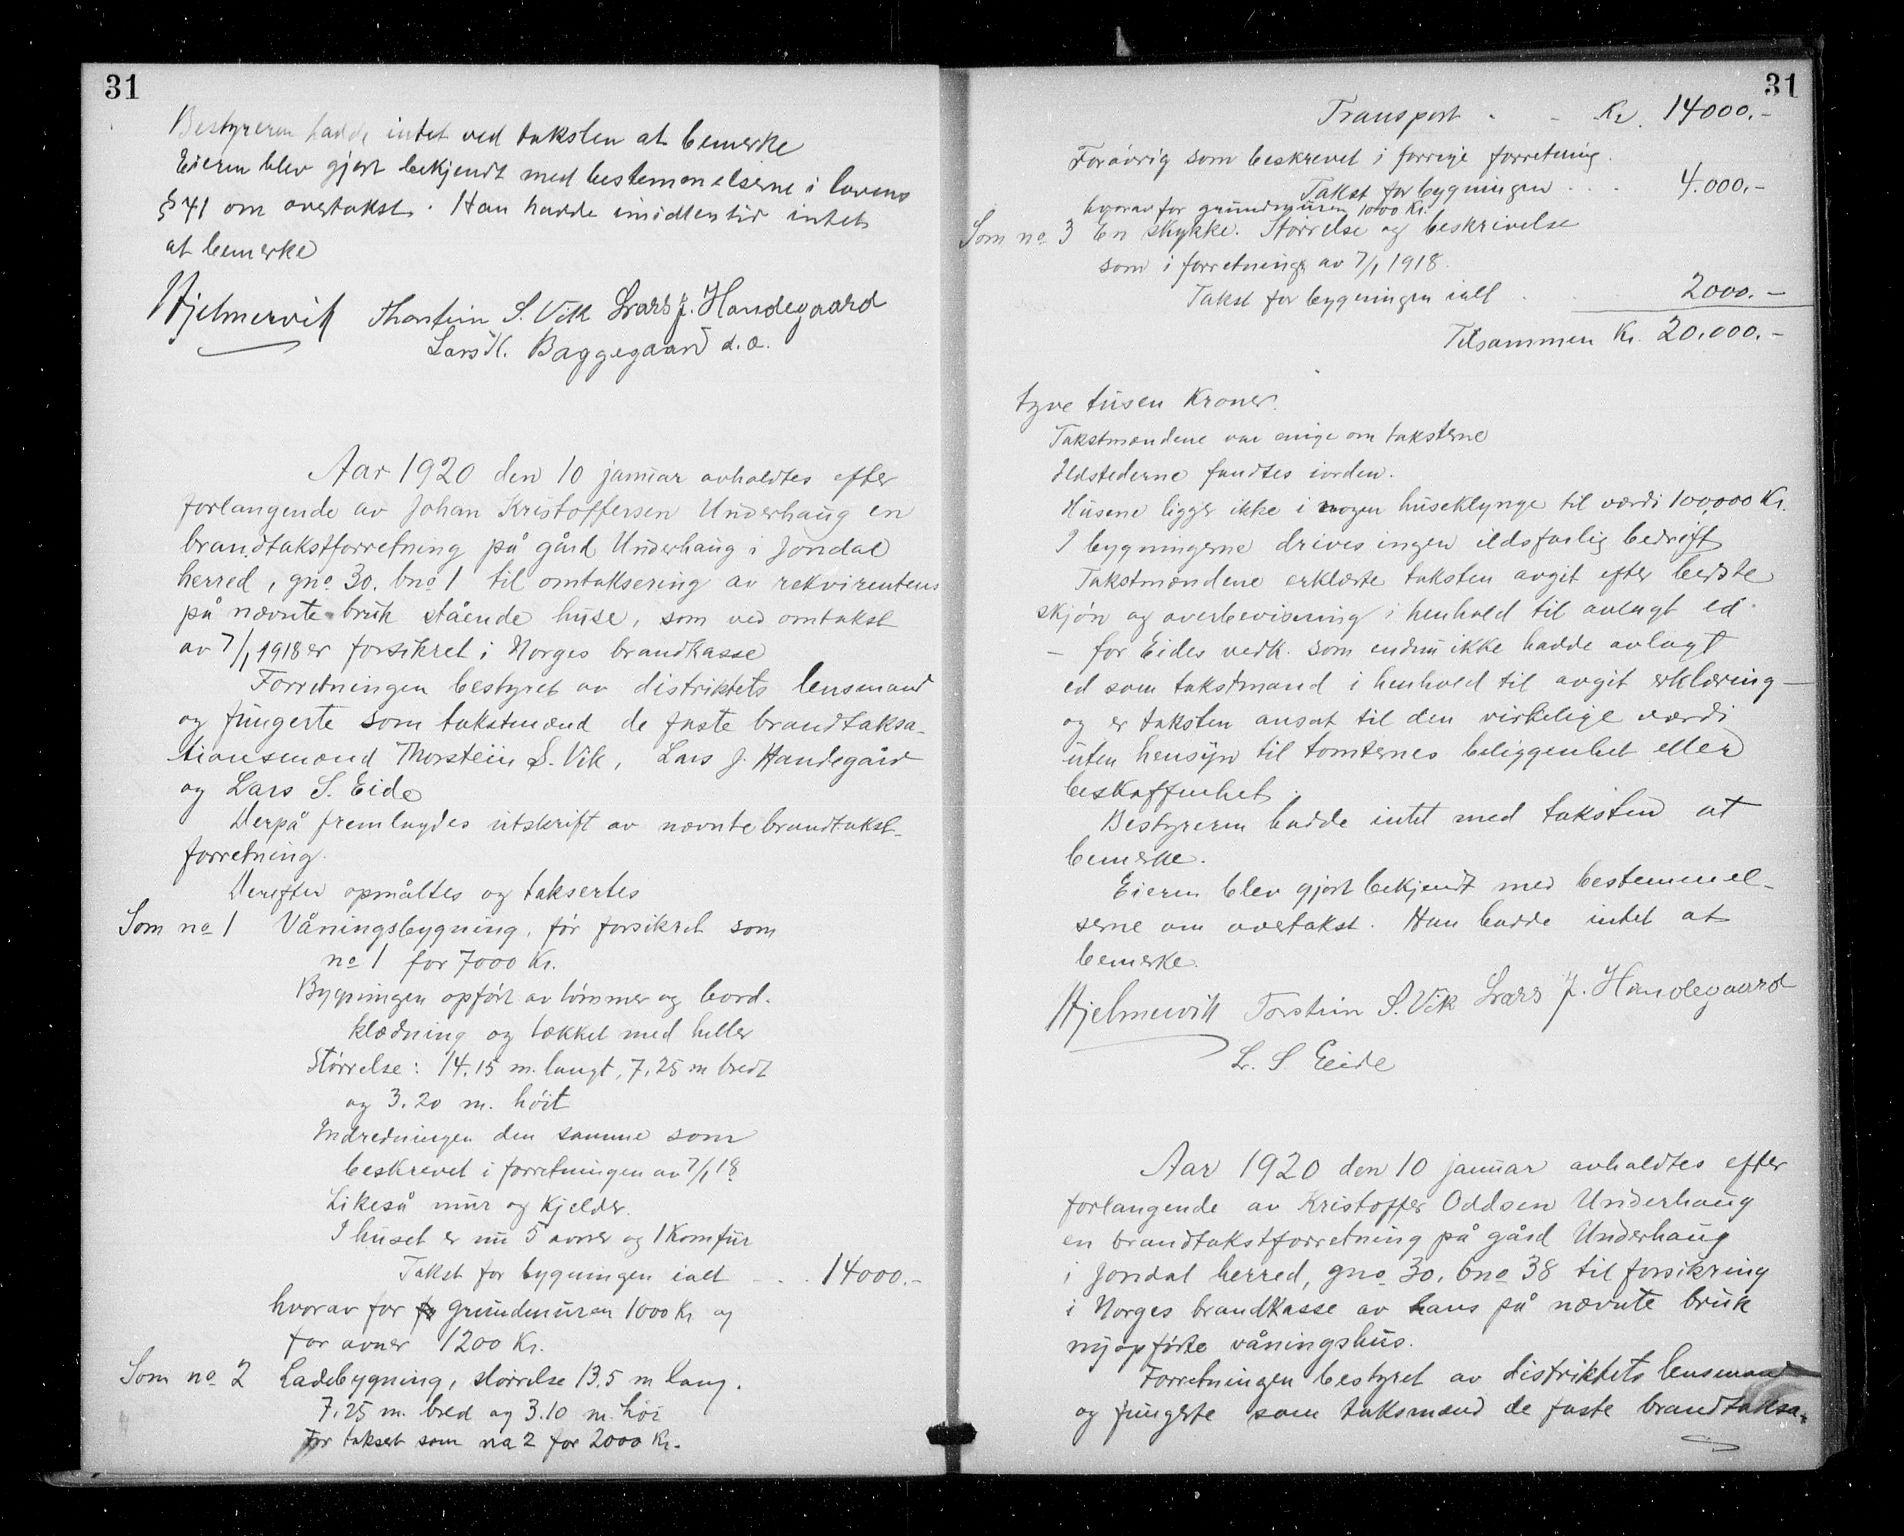 31
Bestyreren hadde intet ved taksten at bemerke
Eieren blev gjort bekjendt med bestemmelserne i lovens
§ 41 om overtakst. Han hadde imidlertid intet
at bemerke
Hjelmervik Thorstein S. Vik Lars J. Handegaard
Lars H. Baggegaard
Aar 1920 den 10 januar avholdtes efter
forlangende av Johan Kristoffersen Underhaug en
brandtakstforretning på gård Underhaug i Jondal
herred, gno. 30. bno 1 til omtaksering av rekvirentens
på nævnte bruk stående huse, som ved omtakst
av 7/1 1918 er forsikret i Norges brandkasse
Forretningen bestyret av distriktets lensmand
og fungerte som takstmænd de faste brandtaksa-
tionsmænd Thorstein S. Vik, Lars J. Handegård
og Lars S. Eide
Derpå fremlagdes utskrift av nævnte brandtakst-
forretning.
Derefter opmåltes og taksertes
Som no 1 Våningsbygning, før forsikret som
no 1 for 7000 Kr.
Bygningen opført av tømmer og bord-
klædning og tækket med heller
Størrelse: 14.15 m. langt, 7.25 m bredt
og 3.20 m. høit
Indredningen den samme som
beskrevet i forretningen av 7/1 18
Likeså mur og kjelder.
I huset er nu 5 ovner og 1 Komfur
Takst for bygningen ialt - . . 14000.-
hvorav for grundmuren 1000 Kr og
for ovner 1200 Kr.
Som no 2 Ladebygning, størrelse 13.5 m lang.
7.25 m. bred og 3.10 m. høi
Før taksert som no 2 for 2000 Kr.
31
Transport . - Kr. 14000.-
Forøvrig som beskrevet i forrige forretning.
Takst for bygningen . . . 4.000.-
hvorav for grundmuren 1000 Kr.
Som no 3 En skykke. Størrelse og beskrivelse
som i forretning av 7/1 1918.
Takst for bygningen ialt . . . 2000.-
Tilsammen Kr. 20.000.-
tyve tusen Kroner.
Takstmændene var enige om taksterne
Ildstederne fandtes iorden.
Husene ligger ikke i nogen huseklynge til værdi 100,000 Kr.
I bygningerne drives ingen ildsfarlig bedrift
Takstmændene erklærte taksten avgit efter bedste
skjøn og overbevisning i henhold til avlagt ed
- for Eides vedk. som endnu ikke hadde avlagt
ed som takstmand i henhold til avgit erklæring -
og er taksten ansat til den virkelige værdi
uten hensyn til tomternes beliggenhet eller
beskaffenhet.
Bestyreren hadde intet med taksten at
bemerke.
Eieren blev gjort bekjendt med bestemmel-
serne om overtakst. Han hadde intet at
bemerke.
Hjelmervik Torstein S. Vik Lars J. Handegaard
L. S Eide
Aar 1920 den 10 januar avholdtes efter
forlangende av Kristoffer Oddsen Underhaug
en brandtakstforretning på gård Underhaug
i Jondal herred, gno. 30. bno 38 til forsikring
i Norges brandkasse av hans på nævnte bruk
nyopførte våningshus.
Forretningen bestyret av distriktets lensmand
og fungerte som taksmænd de faste brandtaksa-